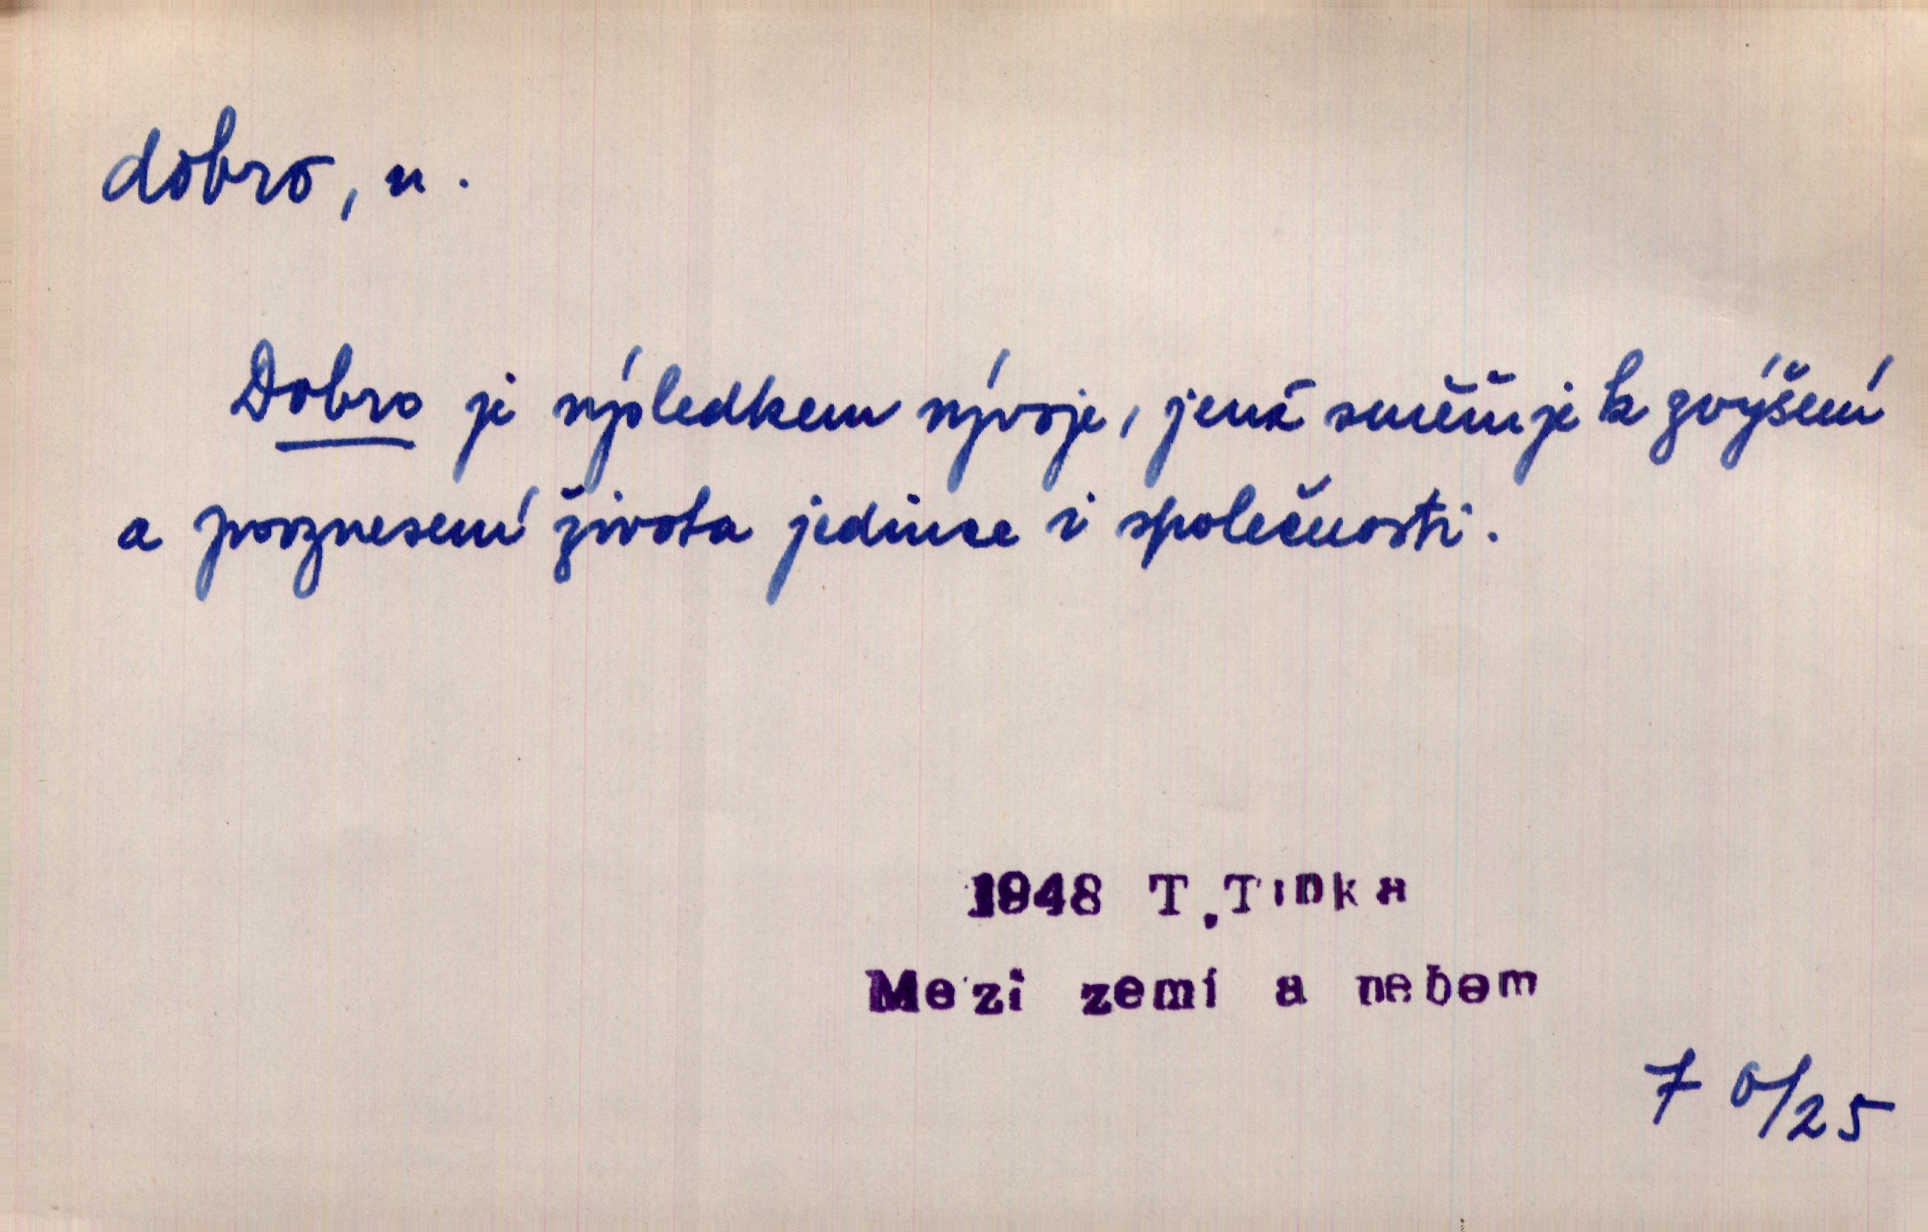 dobro, n.
Dobro je výsledkem vývoje, jenž směřuje k zvýšení
a povznesení života jedince i společnosti.
1948 T.Tinka
Mezi zemí a nebem
7 0/25